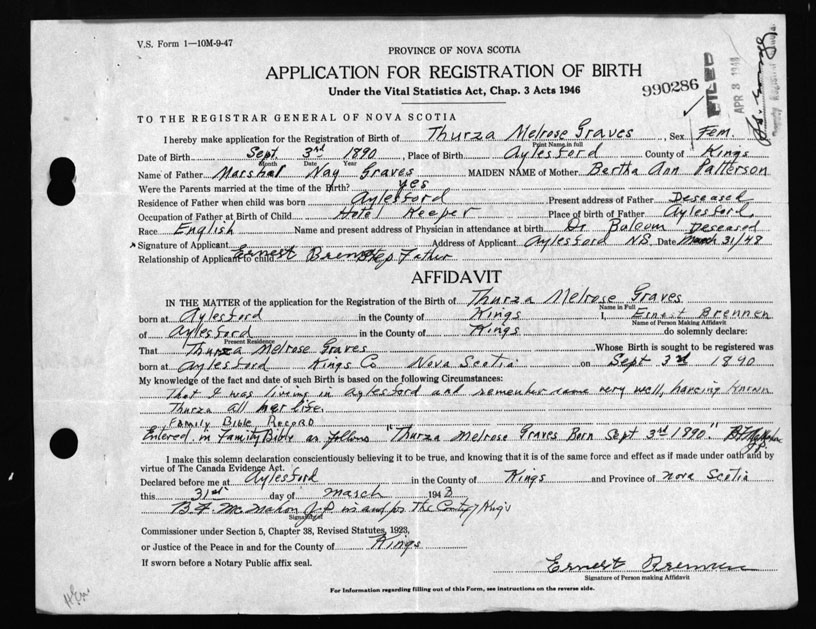 V.S. Form 1—10M-9-47
PROVINCE OF NOVA SCOTIA
APPLICATION FOR REGISTRATION OF BIRTH
Under the Vital Statistics Act, Chap. 3 Acts 1946
990286
FILED
APR 3 1948
TO THE REGISTRAR GENERAL OF NOVA SCOTIA
I hereby make application for the Registration of Birth of Thurza Melrose Graves, Sex Fem.
Print Name in full
Date of Birth Sept. 3rd 1890, Place of Birth Aylesford County of Kings
Month Date Year
Name of Father Marshal Nay Graves MAIDEN NAME of Mother Bertha Ann Patterson
Were the Parents married at the time of the Birth? yes
Residence of Father when child was born Aylesford Present address of Father Deseased
Occupation of Father at Birth of Child Hotel Keeper Place of Birth of Father Aylesford.
Race English Name and present address of Physician in attendance at birth Dr. Balcom Deseased
Signature of Applicant Ernest Brennen Address of Applicant Aylesford N.S. Date March 31/48
Relationship of Applicant to child Step Father
AFFIDAVIT
IN THE MATTER of the application for the Registration of the Birth of Thurza Melrose Graves
Name in Full
born at Aylesford in the County of Kings I, Ernest Brennen
Name of Person Making Affidavit
of Aylesford in the County of Kings do solemnly declare:
Present Residence
That Thurza Melrose Graves Whose Birth is sought to be registered was
born at Aylesford Kings Co Nova Scotia on Sept 3rd 1890
My knowledge of the fact and date of such Birth is based on the following Circumstances:
That I was living in Aylesford and remember same very well, having known
Thurza all her life.
Family Bible Record
Entered in Family Bibly as follows "Thurza Melrose Graves Born Sept 3rd 1890."
J.P.
I make this solemn declaration conscientiously believing it to be true, and knowing that it is of the same force and effect as if made under oath and by
virtue of The Canada Evidence Act.
Declared before me at Aylesford in the County of Kings and Province of Nova Scotia
this 31st day of March 1948
B. F. McMahon J.P. in and for The County of Kings
Signature of
Commissioner under Section 5, Chapter 38, Revised Statutes, 1923,
or Justice of the Peace in and for the County of Kings
If sworn before a Notary Public affix seal.
Ernest Brennen
Signature of Person making Affidavit
For Information regarding filling out of this Form, see instructions on the reverse side.